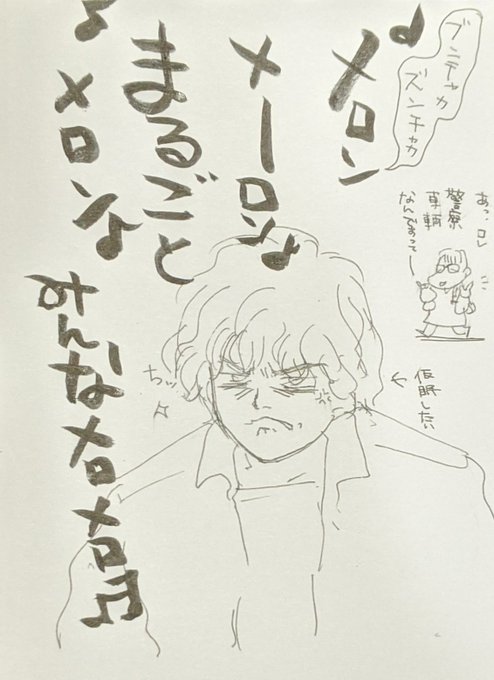 ブンチャカ
ズンチャカ
♪メロン
メーロン♪
まるごと
♪メロン♪
みんなメロメロ♫
警察
車輌
なんですってー
仮眠したい
チッ